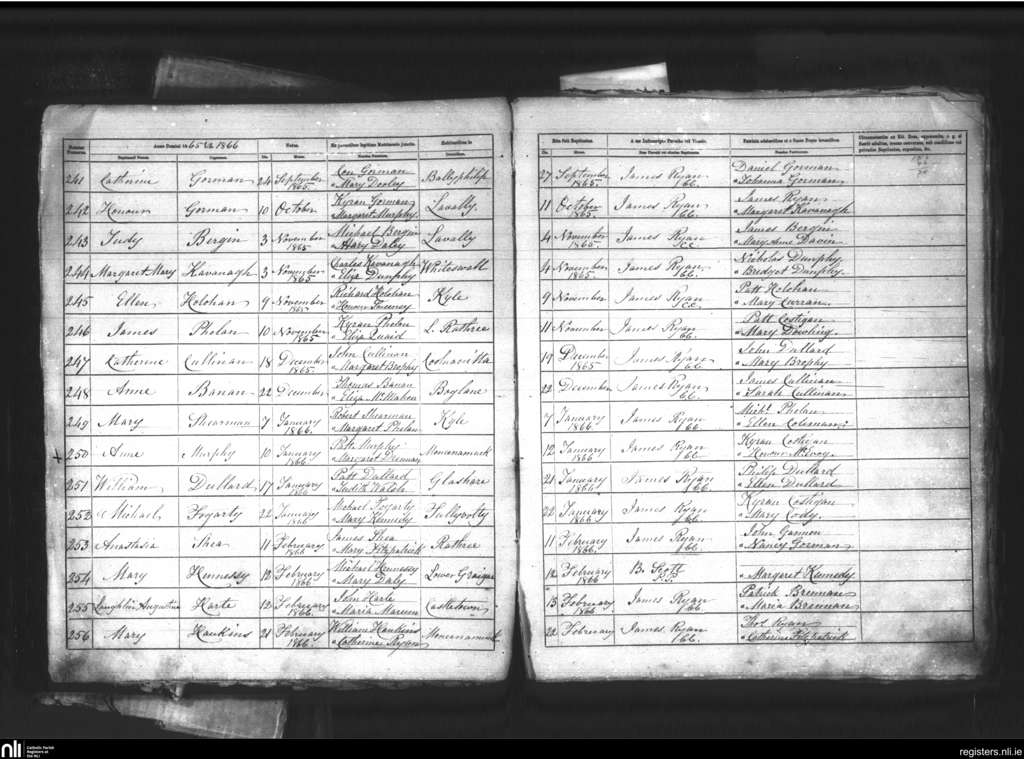 Anno Domini 1865 & 1866
Natus.
Die
Mense.
Rite fuit Baptizatus.
A me Infrascripto Parocho vel Vicario.
241 Catherine Gorman 24 September 1865. Con Gorman Ballyphilip 27 September 1865. James Ryan CC. Daniel Gorman
" Mary Dooley " Johanna Gorman
242 Honour Gorman 10 October Kyran Gorman Lavally 11 October 1865. James Ryan CC. James Ryan
" Margaret Murphy " Margaret Kavanagh
243 Judy Bergin 3 November 1865 Michael Bergin Lavally 4 November 1865. James Ryan CC James Bergin
" Mary Daly " Mary Anne Davin
244 Margaret Mary Kavanagh 3 November 1865 Charles Kavanagh Whiteswall 4 November 1865. James Ryan CC. Nicholas Dunphy
" Eliza Dunphy " Bridget Dunphy
245 Ellen Holohan 9 November 1865 Richard Holohan Kyle 9 November James Ryan CC Patt Holohan
" Honour " Mary Curran
246 James Phelan 10 November 1865 Kyran Phelan L. Rathree 11 November James Ryan CC. Patt Costigan
" Eliza Quaid " Mary Dowling
247 Catherine Cullinan 18 December 1865. John Cullinan 19 December 1865 James Ryan CC. John Dullard
" Margaret Brophy " Mary Brophy
248 Anne Banan 22 December Thomas Banan Boylane 22 December James Ryan CC. James Cullinan
" Eliza McMahon " Sarah Cullinan
249 Mary Shearman 7 January 1866. Robert Shearman Kyle 7 January 1866. James Ryan CC Michl. Phelan
" Margaret Phelan " Ellen
250 Anne Murphy 10 January 1866 Patt Murphy Monanamuck 12 January 1866. James Ryan CC Kyran Costigan
" Margaret " Honour McEvoy
251 William Dullard 17 January 1866 Patt Dullard Glashare 21 January 1866 James Ryan CC. Philip Dullard
" Judith Walsh " Ellen Dullard
252 Michael Fogarty 22 January 1866 Michael Fogarty 22 January 1866 James Ryan CC. Kyran Costigan
" Mary Kennedy " Mary Cody
253 Anastasia Shea 11 February 1866 James Shea Rathree 11 February 1866. James Ryan CC. John Gannon
" Mary Fitzpatrick " Nancy Gorman
254 Mary Hennessy 12 February 1866 Michael Hennessy Lower Graigue 12 February 1866 B. Scott P.P.
" Mary Daly " Margaret Kennedy
255 Laughlin Augustine Harte 12 February 1866. John Harte Castletown 13 February 1866. James Ryan CC. Patrick Brennan
" Maria " Maria Brennan
256 Mary Hawkins 21 February 1866. William Hawkins Monanamuck 22 February James Ryan CC. Thos Ryan
" Catherine Ryan " Catherine Fitzpatrick
nli
Catholic Parish
Registers at
the NLI
registers.nli.ie